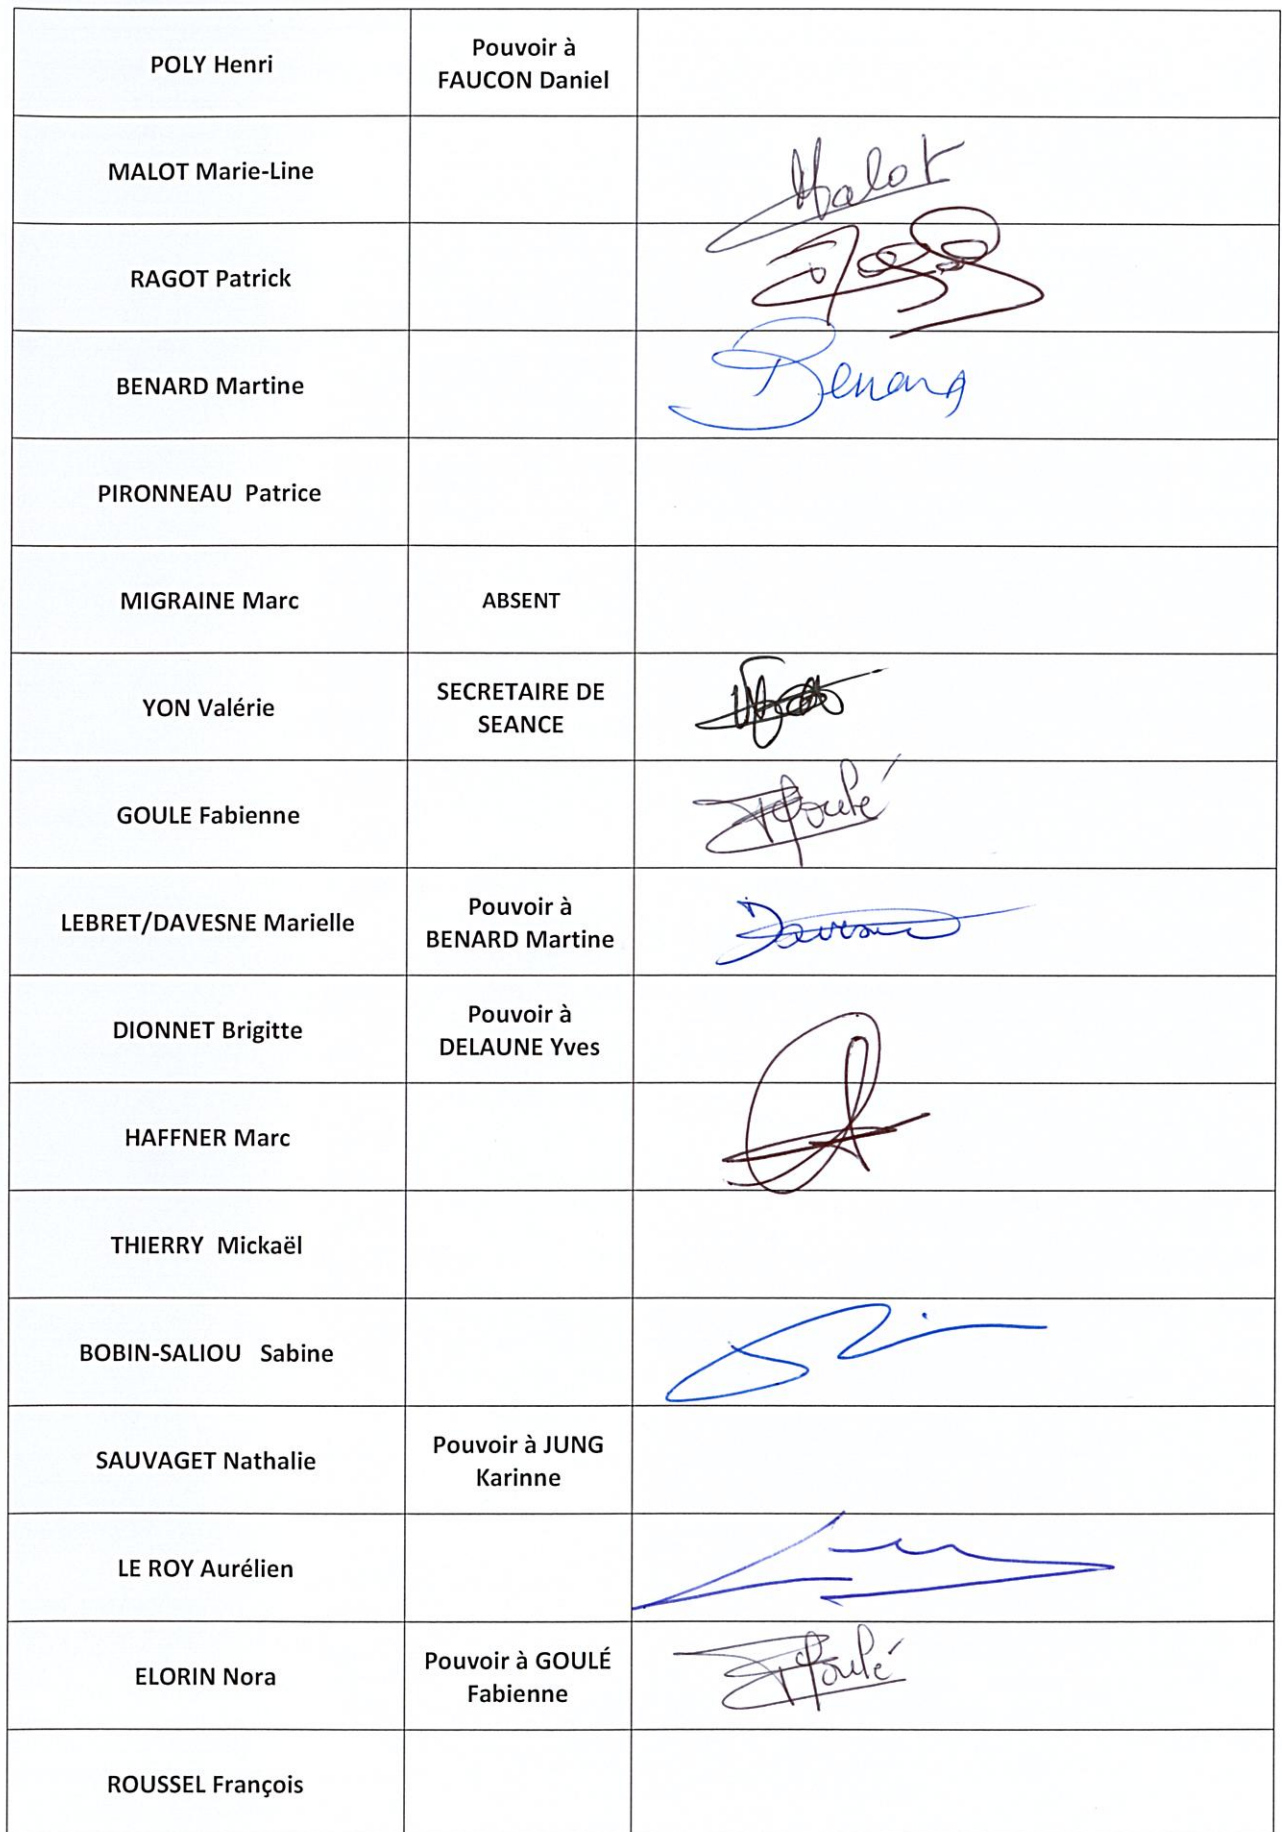 POLY Henri
Pouvoir à
FAUCON Daniel
MALOT Marie-Line
Malot
RAGOT Patrick
BENARD Martine
Benard
PIRONNEAU Patrice
MIGRAINE Marc
ABSENT
YON Valérie
SECRETAIRE DE
SEANCE
GOULE Fabienne
Goulé
LEBRET/DAVESNE Marielle
Pouvoir à
BENARD Martine
DIONNET Brigitte
Pouvoir à
DELAUNE Yves
HAFFNER Marc
THIERRY Mickaël
BOBIN-SALIOU Sabine
SAUVAGET Nathalie
Pouvoir à JUNG
Karinne
LE ROY Aurélien
ELORIN Nora
Pouvoir à GOULÉ
Fabienne
Goulé
ROUSSEL François